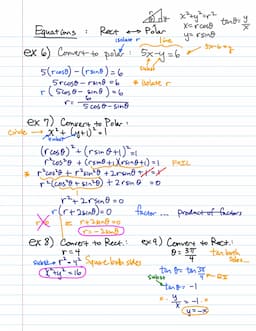 Equations : Rect ↔ Polar
x²+y²=r²
x=rcosθ
y=rsinθ
tanθ=y/x
isolate r
line
ex 6) Convert to polar: 5x-y=6
subst
5(rcosθ)-(rsinθ)=6
5rcosθ-rsinθ=6 * isolate r
r(5cosθ-sinθ)=6
r= 6/(5cosθ-sinθ)
ex 7) Convert to Polar:
circle → x²+(y+1)²=1
subst
(rcosθ)²+(rsinθ+1)²=1
r²cos²θ+(rsinθ+1)(rsinθ+1)=1 FOIL
* r²cos²θ+r²sin²θ+2rsinθ+1=1
r²(cos²θ+sin²θ)+2rsinθ=0
r²+2rsinθ=0
r(r+2sinθ)=0 factor ... product of factors
r=0 r+2sinθ=0
r=-2sinθ
ex 8) Convert to Rect:
r=4
r²=4² Square both sides
subst
x²+y²=16
ex 9) Convert to Rect:
θ=3π/4 tan both sides...
tanθ=tan 3π/4
subst
tanθ=-1
y/x=-1
y=-x